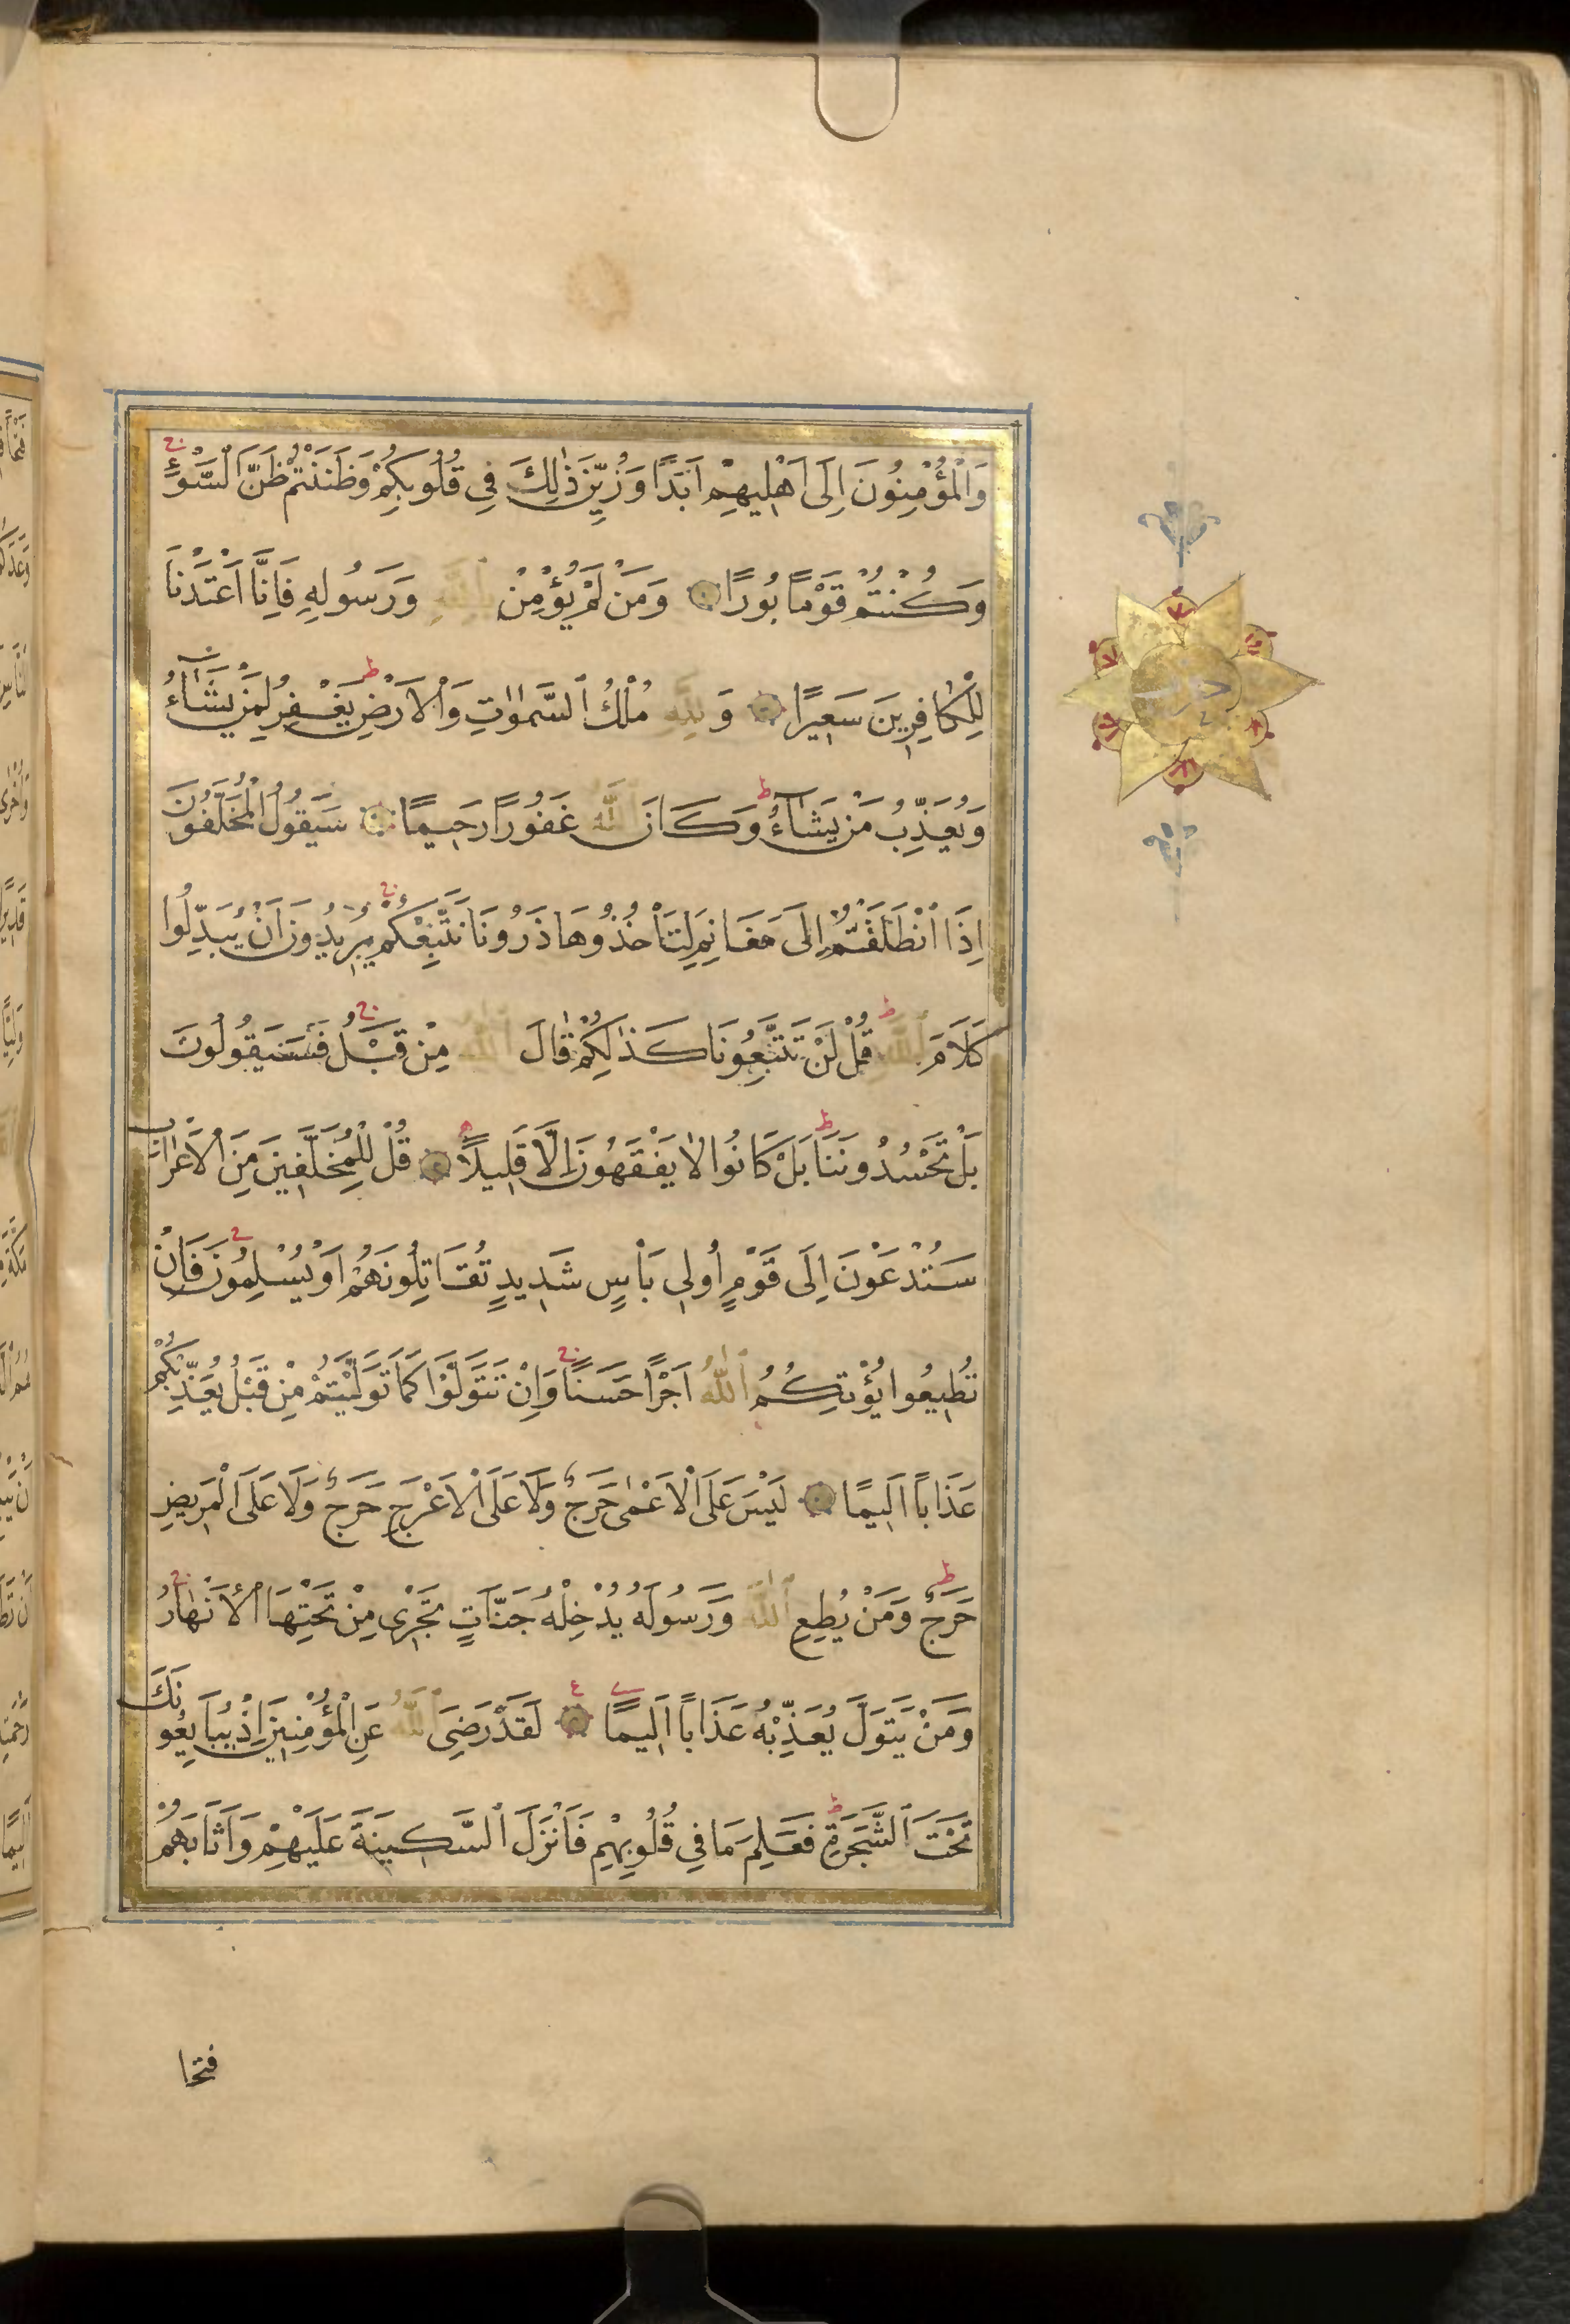 وَالْمُؤْمِنُونَ اِلَى اَهْلِيهِمْ اَبَدًا وَزُيِّنَ ذٰلِكَ فِي قُلُوبِكُمْ وَظَنَنْتُمْ ظَنَّ السَّوْءِ
وَكُنْتُمْ قَوْمًا بُورًا وَمَنْ لَمْ يُؤْمِنْ بِاللّٰهِ وَرَسُولِهِ فَاِنَّا اَعْتَدْنَا
لِلْكَافِرِينَ سَعِيرًا وَلِلّٰهِ مُلْكُ السَّمٰوَاتِ وَالْاَرْضِ يَغْفِرُ لِمَنْ يَشَٓاءُ
وَيُعَذِّبُ مَنْ يَشَٓاءُ وَكَانَ اللّٰهُ غَفُورًا رَحِيمًا سَيَقُولُ الْمُخَلَّفُونَ
اِذَا انْطَلَقْتُمْ اِلَى مَغَانِمَ لِتَأْخُذُوهَا ذَرُونَا نَتَّبِعْكُمْ يُرِيدُونَ اَنْ يُبَدِّلُوا
كَلَامَ اللّٰهِ قُلْ لَنْ تَتَّبِعُونَا كَذٰلِكُمْ قَالَ اللّٰهُ مِنْ قَبْلُ فَسَيَقُولُونَ
بَلْ تَحْسُدُونَنَا بَلْ كَانُوا لَا يَفْقَهُونَ اِلَّا قَلِيلًا قُلْ لِلْمُخَلَّفِينَ مِنَ الْاَعْرَابِ
سَتُدْعَوْنَ اِلَى قَوْمٍ اُولِي بَأْسٍ شَدِيدٍ تُقَاتِلُونَهُمْ اَوْ يُسْلِمُونَ فَاِنْ
تُطِيعُوا يُؤْتِكُمُ اللّٰهُ اَجْرًا حَسَنًا وَاِنْ تَتَوَلَّوْا كَمَا تَوَلَّيْتُمْ مِنْ قَبْلُ يُعَذِّبْكُمْ
عَذَابًا اَلِيمًا لَيْسَ عَلَى الْاَعْمٰى حَرَجٌ وَلَا عَلَى الْاَعْرَجِ حَرَجٌ وَلَا عَلَى الْمَرِيضِ
حَرَجٌ وَمَنْ يُطِعِ اللّٰهَ وَرَسُولَهُ يُدْخِلْهُ جَنَّاتٍ تَجْرِي مِنْ تَحْتِهَا الْاَنْهَارُ
وَمَنْ يَتَوَلَّ يُعَذِّبْهُ عَذَابًا اَلِيمًا لَقَدْ رَضِيَ اللّٰهُ عَنِ الْمُؤْمِنِينَ اِذْ يُبَايِعُونَكَ
تَحْتَ الشَّجَرَةِ فَعَلِمَ مَا فِي قُلُوبِهِمْ فَاَنْزَلَ السَّكِينَةَ عَلَيْهِمْ وَاَثَابَهُمْ
فتحا